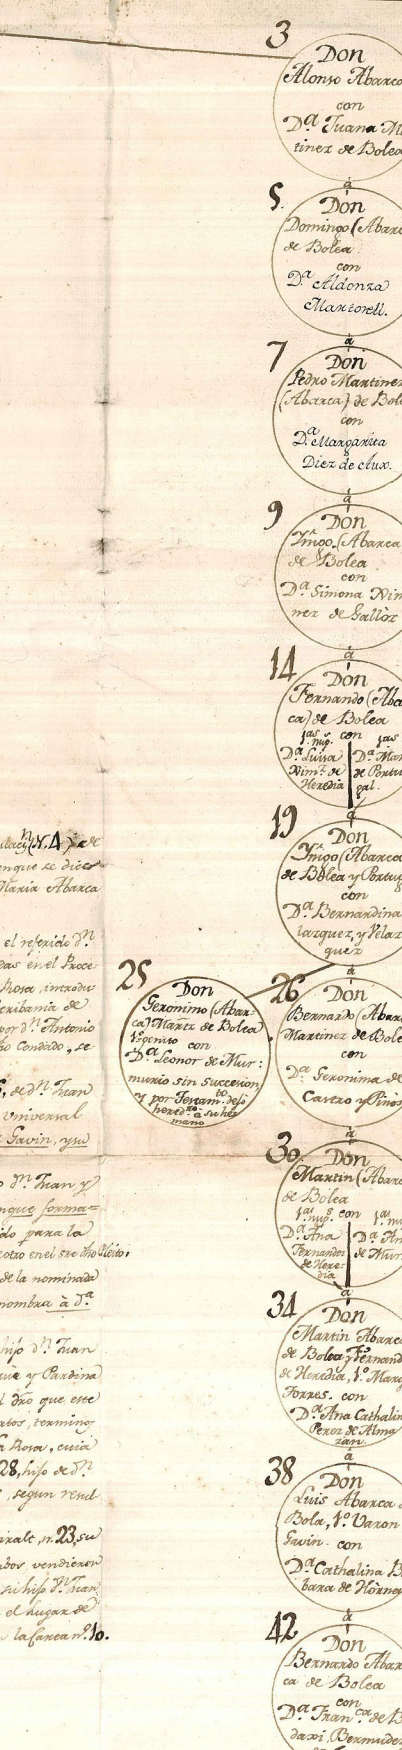 3
Don
Alonso Abarca
con
D.ª Juana Ma
tinez de Bolea
a
5.
Don
Domingo (Abarc
de Bolea
con
D.ª Aldonza
Martorell.
a
7
Don
Pedro Martinez
(Abarca) de Bole
con
D.ª Margarita
Diez de Aux.
a
9
Don
Yñigo (Abarca
de Bolea
con
D.ª Simona Xim
nez de
a
14
Don
Fernando (Aba
ca) de Bolea
1.as nup.s con 1.as
D.ª Luisa
Xim.z de
Heredia
D.ª Mar
de Portu
gal.
a
19
Don
Yñigo (Abarca
de Bolea y Portug
con
D.ª Bernardina
lazquez y Velaz
quez
25
Don
Geronimo (Abar-
ca) Martz de Bolea
con
D.ª Leonor de Mur:
murio sin Succession,
y por Testam.to dejó
hered.ro a su her
mano
a
26
Don
Bernardo (Abarc
Martinez de Bole
con
D.ª Geronima de
Castro y Pinos
a
30
Don
Martin (Abarc
de Bolea
1.as nup.s con 1.as nu
D.ª Ana
Fernandez
de Here-
dia
D.ª An
de Mur.
a
34
Don
Martin Abarca
de Bolea y Fernand
de Heredia, 1.º Marq
Torres. con
D.ª Ana Cathalin
Perez de Alma
zan.
a
38
Don
Luis Abarca
Bola, 1.º Varon
Gavin. con
D.ª Cathalina B
bara de Hornes
a
42
Don
Bernardo Abar
ca de Bolea
con
D.ª Fran.ca de B
daxi, Bermudez
(N. 4) de
enque se dice
Maria Abarca
el referido d.n
das en el Proce-
Rosa, introdu
cribania de
por d.n Antonio
Condado, se
de d.n Juan
Universal
Gavin, y su
d.n Juan y
forma=
do para la
otro en el Pleito,
de la nominada
nombra à d.ª
hijo d.n Juan
y Pardina
l dro que este
termino
Rosa, cuia
28, hijo de d.n
, segun resul
n. 23, su
bos vendieron
su hijo d.n Juan
el lugar de
la Carta n.º 10.